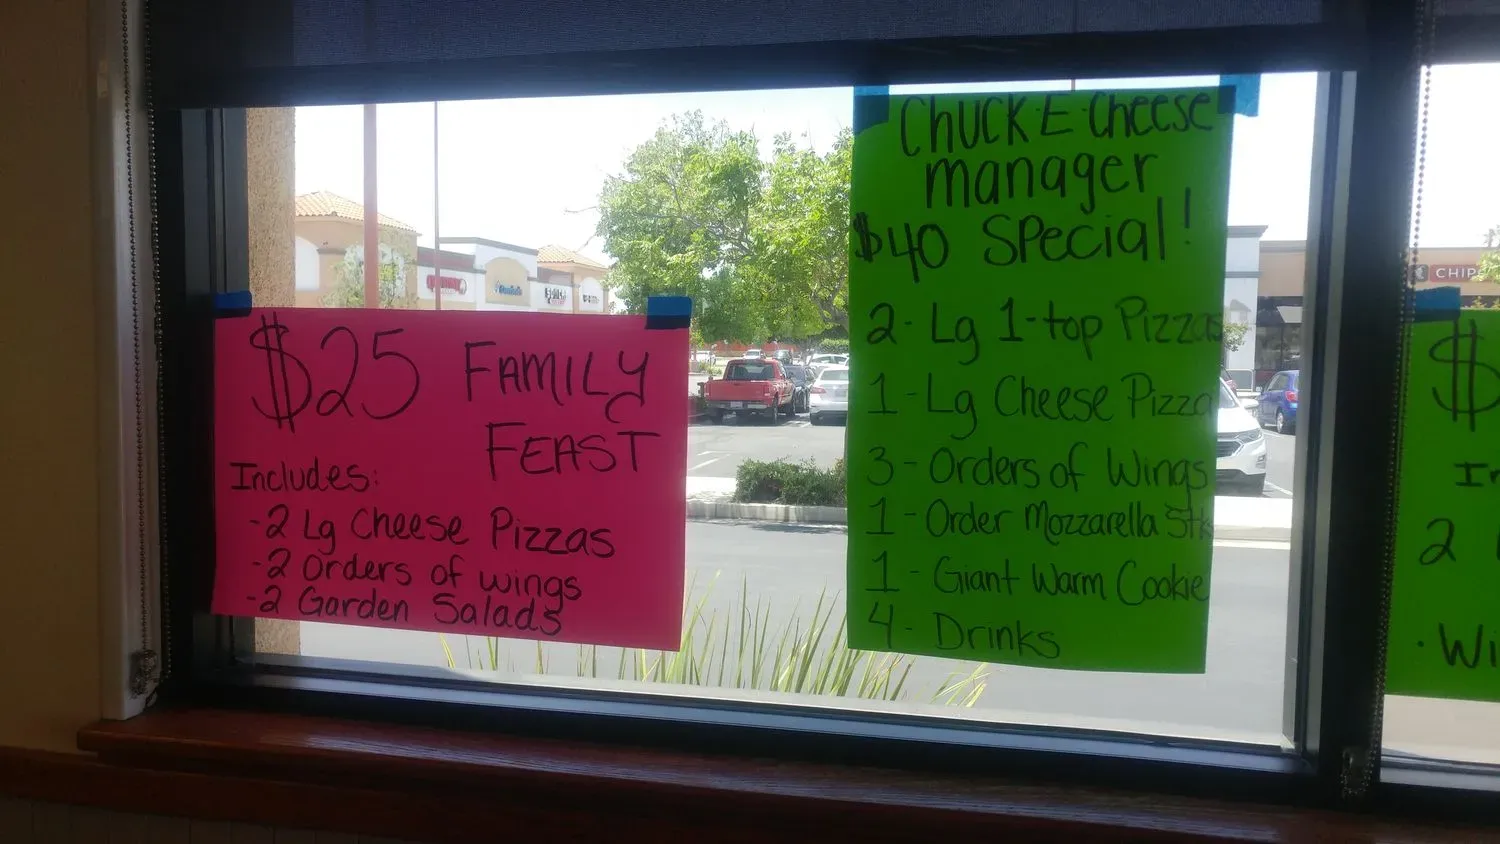 $25 FAMILY
FEAST
Includes:
-2 Lg Cheese Pizzas
-2 Orders of wings
-2 Garden Salads
Chuck-E-Cheese
manager
$40 Special!
2- Lg 1-top Pizzas
1-Lg Cheese Pizza
3-Orders of Wings
1-Order Mozzarella Stks
1- Giant Warm Cookie
4- Drinks
CHIP
$
In
2
• Wi